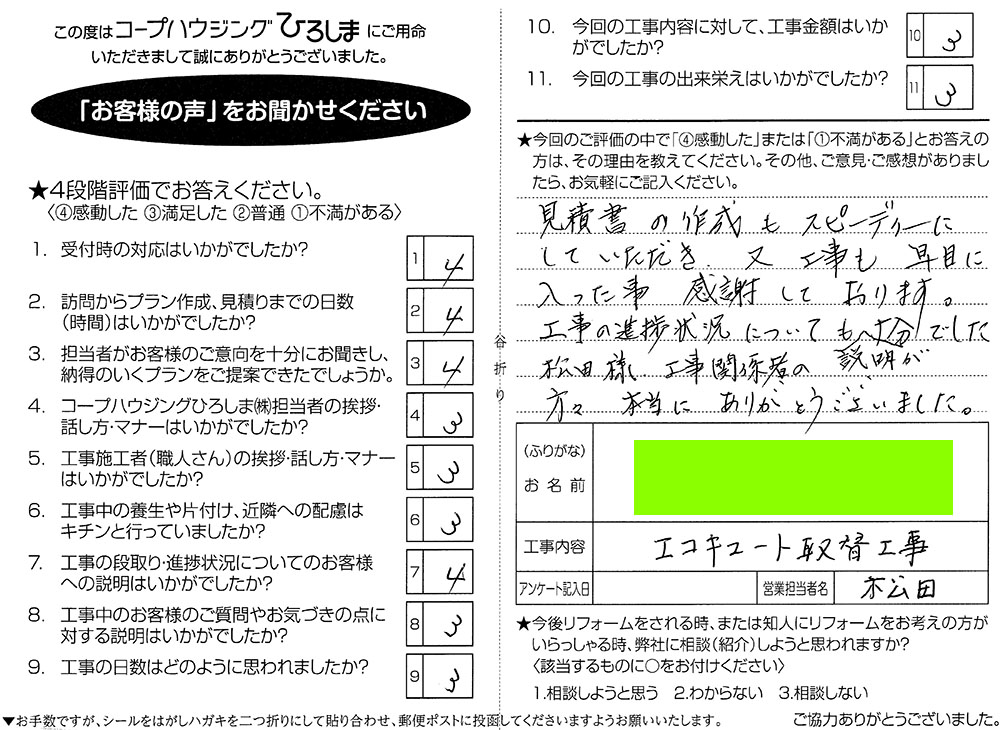 この度はコープハウジングひろしまにご用命
いただきまして誠にありがとうございました。
「お客様の声」をお聞かせください
★4段階評価でお答えください。
〈④感動した ③満足した ②普通 ①不満がある〉
1. 受付時の対応はいかがでしたか?
1 4
2. 訪問からプラン作成、見積りまでの日数
(時間)はいかがでしたか?
2 4
3. 担当者がお客様のご意向を十分にお聞きし、
納得のいくプランをご提案できたでしょうか。
3 4
4. コープハウジングひろしま㈱担当者の挨拶・
話し方・マナーはいかがでしたか?
4 3
5. 工事施工者(職人さん)の挨拶・話し方・マナー
はいかがでしたか?
5 3
6. 工事中の養生や片付け、近隣への配慮は
キチンと行っていましたか?
6 3
7. 工事の段取り・進捗状況についてのお客様
への説明はいかがでしたか?
7 4
8. 工事中のお客様のご質問やお気づきの点に
対する説明はいかがでしたか?
8 3
9. 工事の日数はどのように思われましたか?
9 3
▼お手数ですが、シールをはがしハガキを二つ折りにして貼り合わせ、郵便ポストに投函してくださいますようお願いいたします。
谷折り
10. 今回の工事内容に対して、工事金額はいか
がでしたか?
10 3
11. 今回の工事の出来栄えはいかがでしたか?
11 3
★今回のご評価の中で「④感動した」または「①不満がある」とお答えの
方は、その理由を教えてください。その他、ご意見・ご感想がありまし
たら、お気軽にご記入ください。
見積書の作成もスピーディーに
していただき、又 工事も 早目に
入った事 感謝して おります。
工事の進捗状況についても 十分でした
説明が
松田様、工事関係者の
方々 本当に ありがとうございました。
(ふりがな)
お名前
工事内容 エコキュート取替工事
アンケート記入日 営業担当者名 松田
★今後リフォームをされる時、または知人にリフォームをお考えの方が
いらっしゃる時、弊社に相談(紹介)しようと思われますか?
〈該当するものに○をお付けください〉
1.相談しようと思う 2.わからない 3.相談しない
ご協力ありがとうございました。